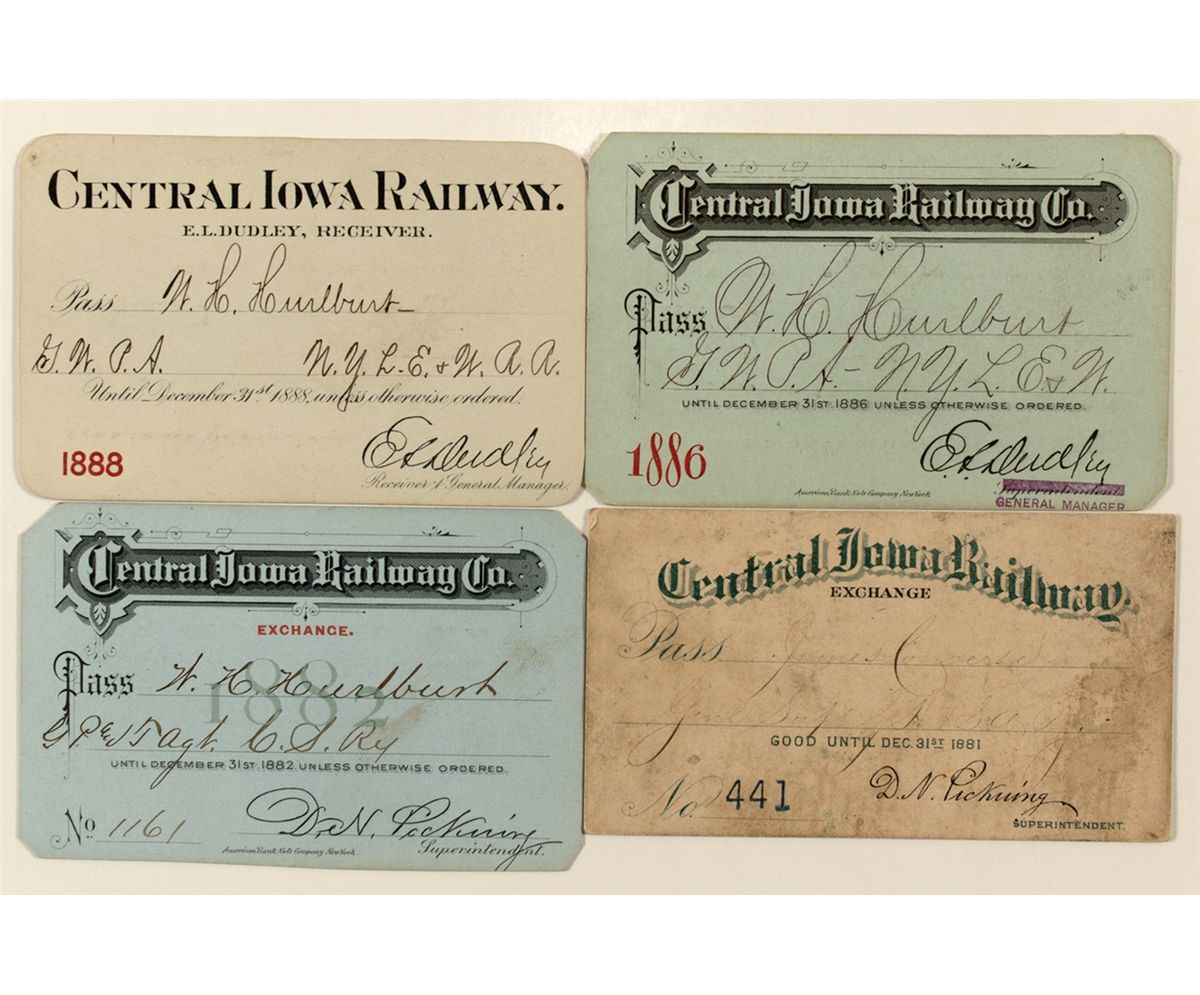 CENTRAL IOWA RAILWAY.
E.L.DUDLEY, RECEIVER.
Pass W. H. Hurlburt
G. W. P. A. N. Y. L. E. & W. R. R.
Until December 31st 1888, unless otherwise ordered.
1888 E L Dudley
Receiver & General Manager.
Central Iowa Railway Co.
Pass W. H. Hurlburt
G. W. P. A - N. Y. L. E. & W.
UNTIL DECEMBER 31ST 1886 UNLESS OTHERWISE ORDERED.
1886 E. L. Dudley
American Bank Note Company New York Superintendent
GENERAL MANAGER
Central Iowa Railway Co.
EXCHANGE.
1882
Pass W. H. Hurlburt
G P & T Agt. C. S. Ry
UNTIL DECEMBER 31ST. 1882. UNLESS OTHERWISE ORDERED.
No 1161 D. N. Pickering
American Bank Note Company New York Superintendent.
Central Iowa Railway.
EXCHANGE
Pass James Converse
Genl Supt
GOOD UNTIL DEC. 31ST 1881
No. 441 D. N. Pickering
SUPERINTENDENT.